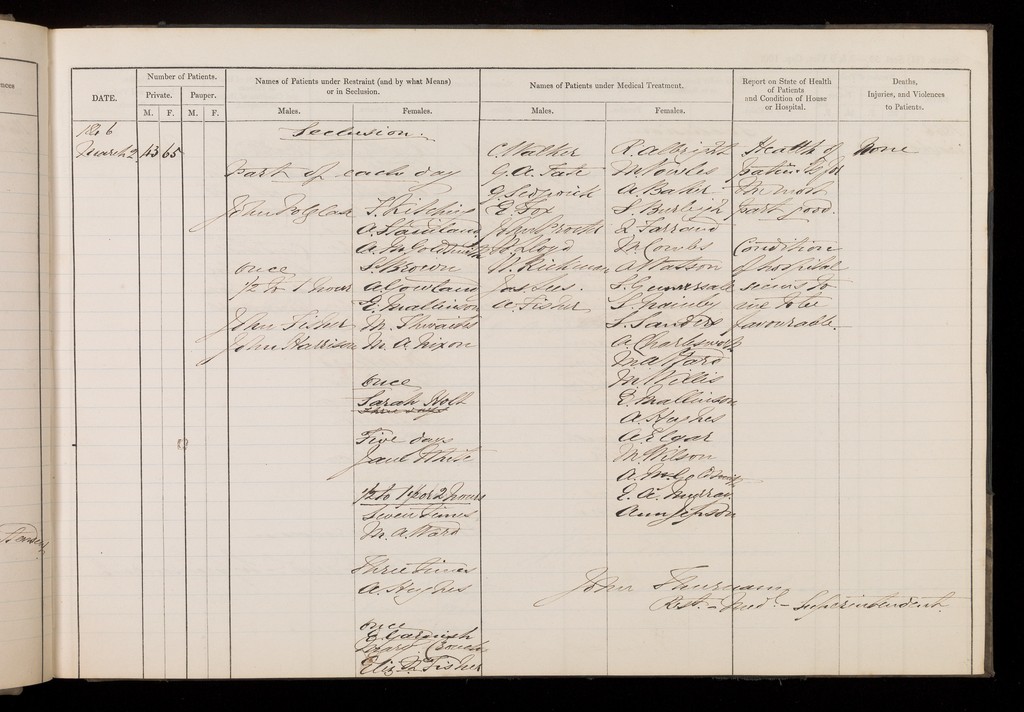 DATE.
Number of Patients.
Private.
Pauper.
M. F. M. F.
Names of Patients under Restraint (and by what Means)
or in Seclusion.
Males.
Females.
Names of Patients under Medical Treatment.
Males.
Females.
Report on State of Health
of Patients
and Condition of House
or Hospital.
Deaths,
Injuries, and Violences
to Patients.
No 6
March 2 43 65
Seclusion.
Part of each day
John
once
1/2 to 1 hour
John Fisher
John Harrison
T. Kitching
A.
A.
S. Brown
A.
E. Mallinson
M. Thwaites
M. A. Nixon
once
Sarah Holt
Five days
Jane White
1/2 to 1 or 2 hours
Seven times
M. A. Ward
Three times
A. Hughes
once
E.
Eliz. Fisher
C. Walker
G. A.
G. Sedgwick
E. Fox
John
Lloyd
W. Rickman
Jas. Lees.
A. Fisher
R. Allbright
M. Fowles
A. Baker
S. Burleigh
Farrand
M. Combs
A Watson
S.
S.
S. Sanders
A. Charlsworth
M A Ward
M. Willis
E. Mallinson
A. Hughes
A. Elgar
M. Wilson
A.
E. A. Murray.
Ann Jepson
Health of
patients for
the most
part good.
Condition
of hospital
seems to
me to be
favourable.
None
John Thurnam
Rest. - Med.l - Superintendent.